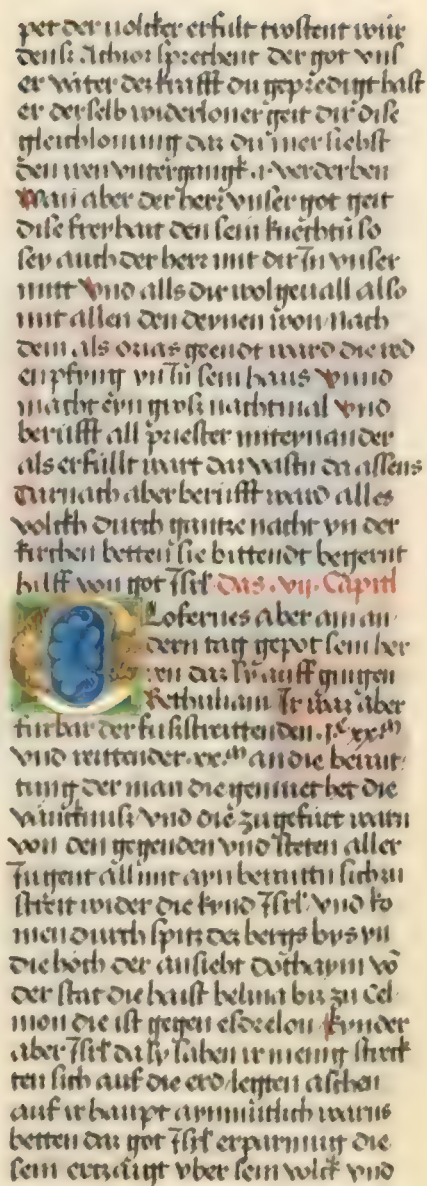 pet der volcker erfult trostent wür
dens Achior sprechent der got vns
er vater des krafft du geprediget hast
er derselb widerloner geit dir dise
gleichlonung daz du mer siehst
den iren vntergangk vnd verderben
Wan aber der herr vnser got geit
dise freyhait den sein knechtn so
sey auch der herr mit dir In vnser
mitt Vnd alls dir wolgeuall also
mit allen den deynen won nach
dem als ozias geendt ward die red
enpfyng yn In sein haus vnnd
macht eyn gross nachtmal vnd
berufft all priester miteynander
als erfullt wart daz vastn da assens
Darnach aber berufft ward alles
volckh durch gantze nacht yn der
kirchen betten sie bittendt begernt
hilff von got Isrl. Das .vij. Capitl
Olofernes aber am an
dern tag gepot sein her
ren daz sy auff gingen
Bethuliam Ir waz aber
furbar der fußstreittenden .jc xx.m
vnd reittender .xx.m an die berait
tung der man die gemuet het die
vancknuss vnd die zugefürt warn
von den gegenden vnd steten aller
Iugent all mit ayn beraittn sich zu
streit wider die kynd Isrl. vnd ko
men durch spitz des bergs bys yn
die höch der ansieht dothaym vō
der stat die haist belma bis zu Cel
mon die ist gegen esdrelon kynder
aber Isrl da sy sahen ir menig streck
ten sich auf die erd legten aschen
auf ir haupt aynmütlich warns
betten daz got Isrl erparmung die
sein erczaigt vber sein volck vnd